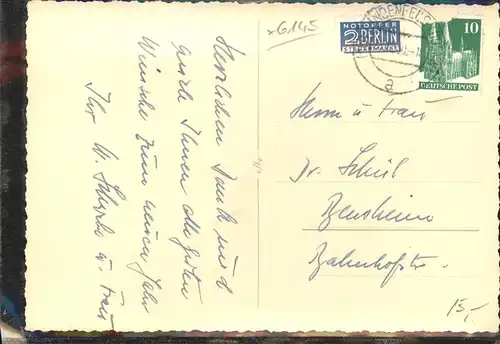 Herzlichen Dank und
auch Ihnen alle guten
Wünsche zum neuen Jahr
Ihr u. Frau
×G145
NOTOPFER
2 BERLIN
STEUERMARKE
10
DEUTSCHE POST
LINDENFELS
a
Herrn u. Frau
Dr.
Bensheim
Bahnhofstr.
15,-